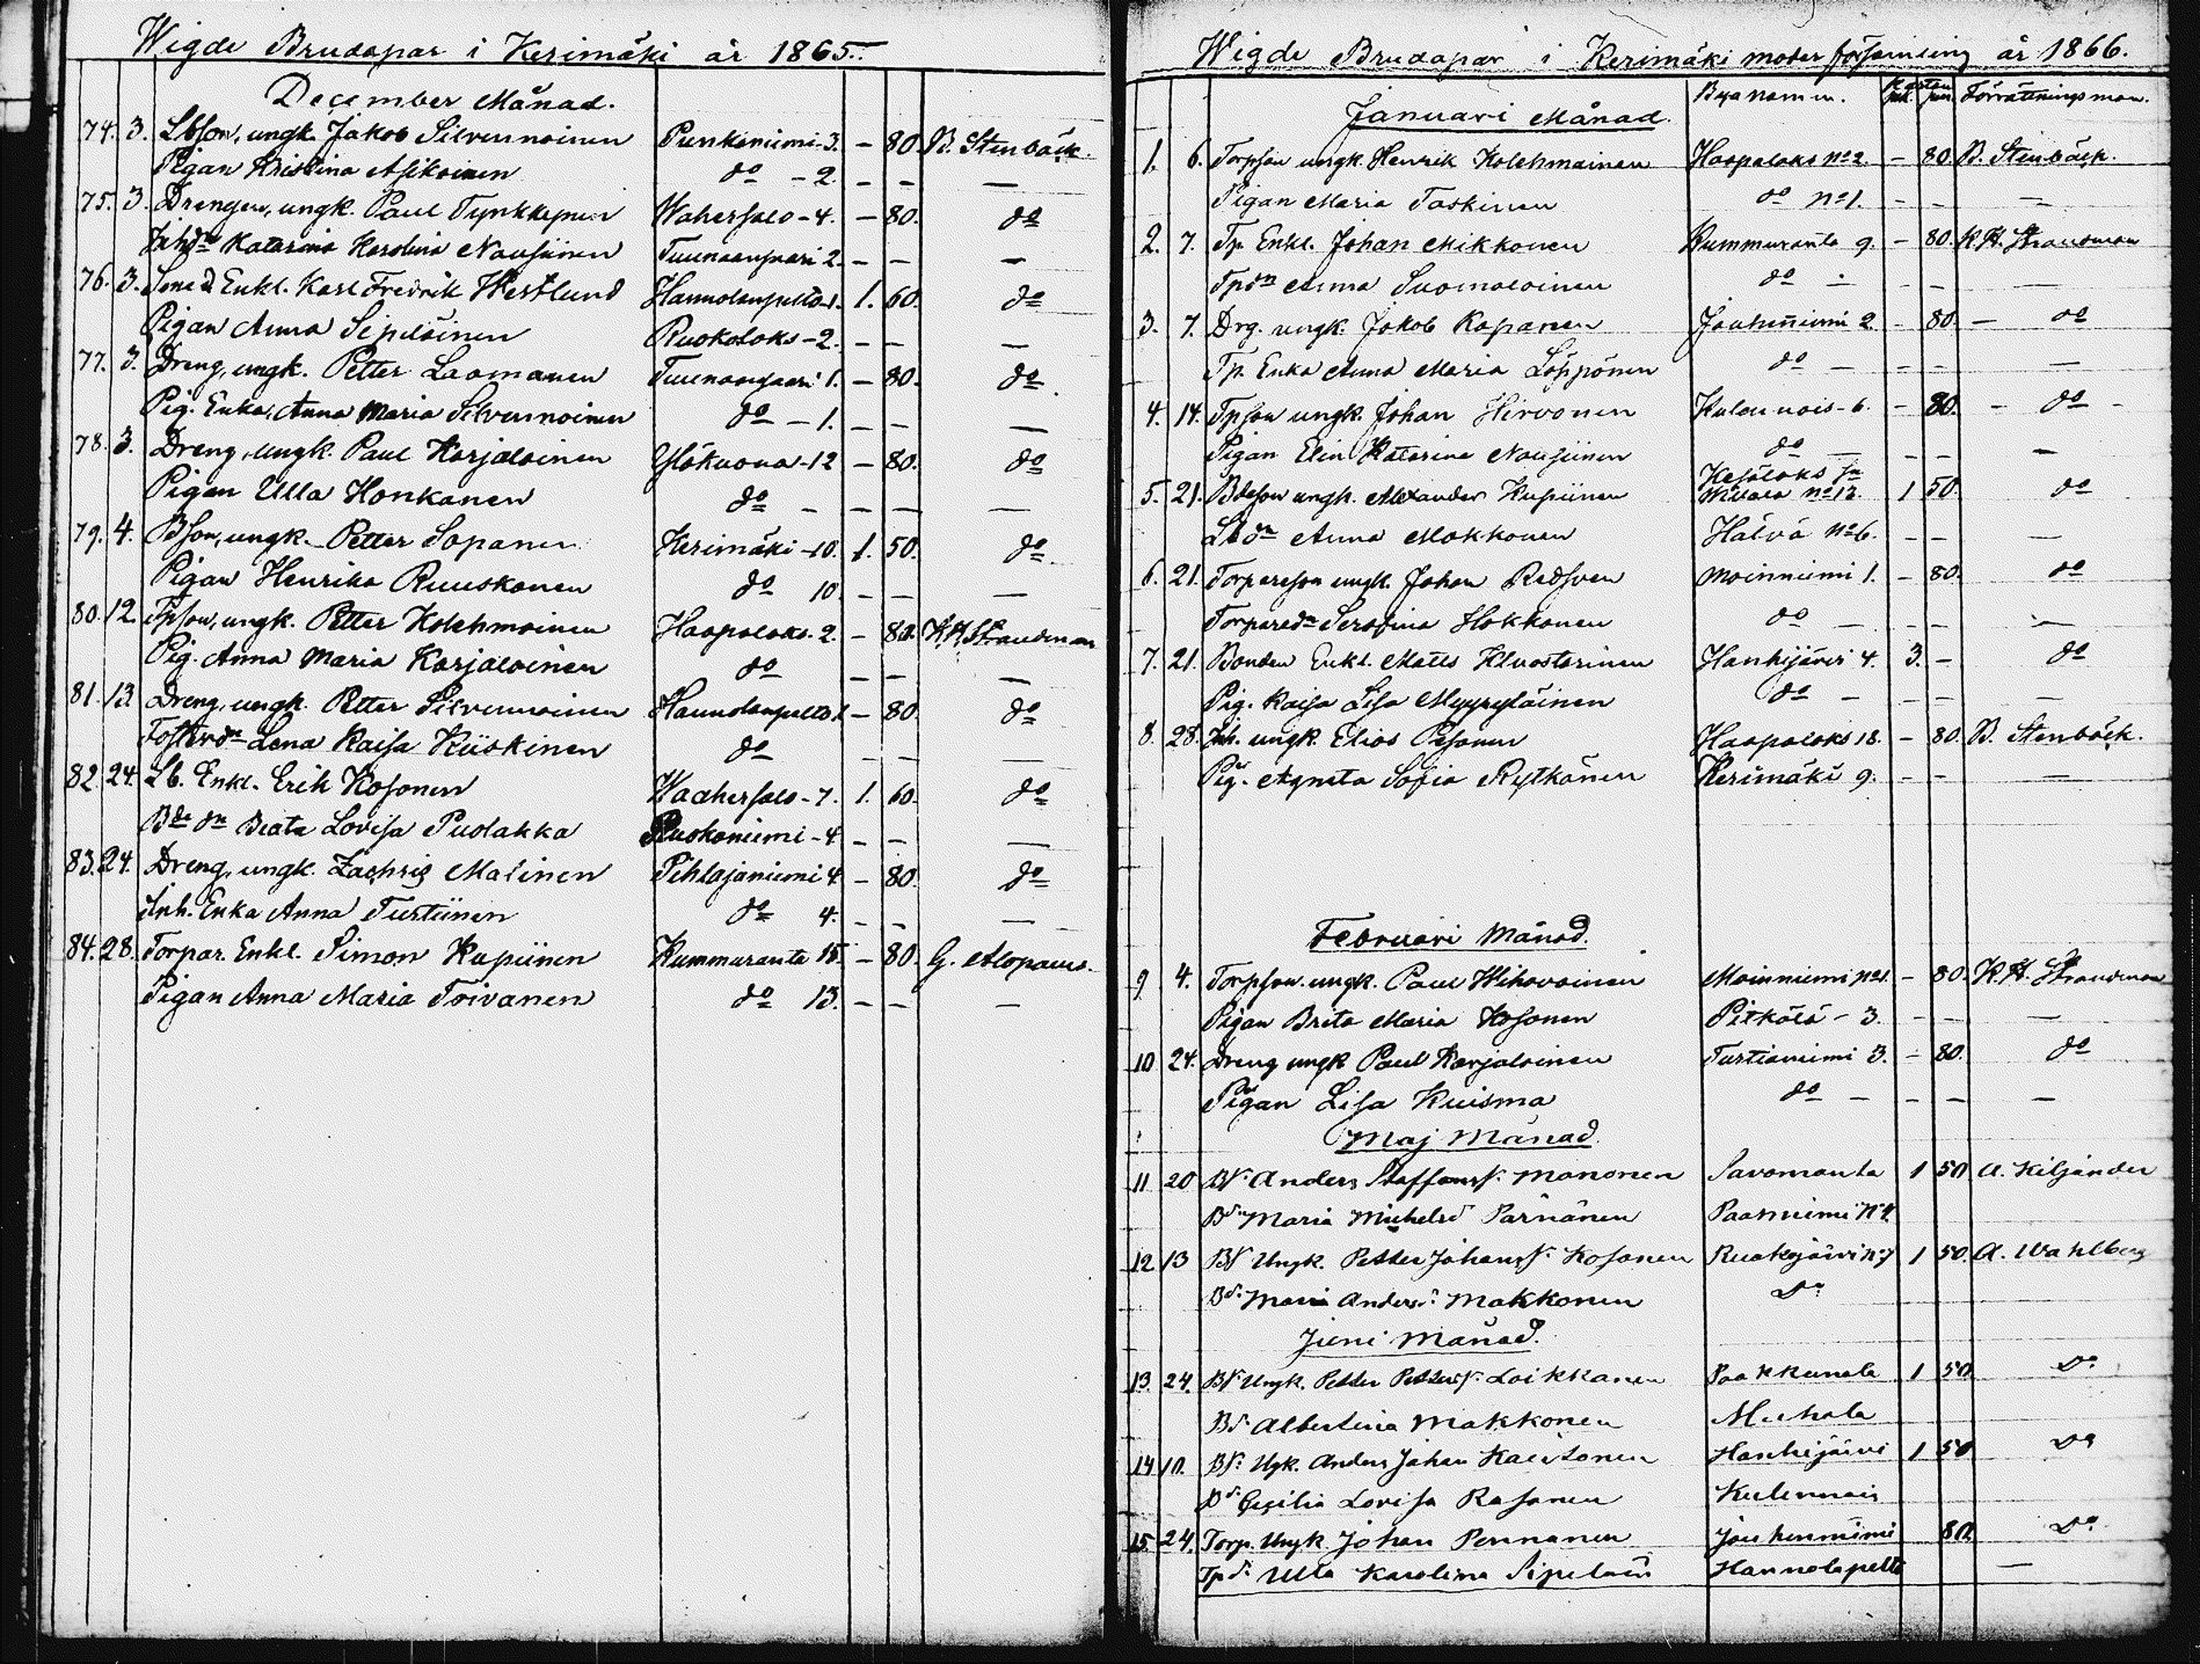 Wigde Brudapar i Kerimäki år 1865.
December Månad.
74. 3. Lbson, ungk. Jakob Silvennoinen Punkaniemi - 3. - 80. B. Stenbäck.
Pigan Kristina Asikainen do - 2. - - -
75. 3. Drengen, ungk. Paul Tynkkynen Wahersalo - 4. - 80. do
Inhdn Katarina Karolina Nousiinen Tuunaanpaari 2. - - -
76. 3. Enkl. Karl Fredrik Westlund Hannolanpelto 1. 1. 60. do
Pigan Anna Sipiläinen Ruokolaks - 2. - - -
77. 3. Dreng, ungk. Petter Laamanen Tuunaanpaari 1. - 80. do
Pig. Enka, Anna Maria Silvennoinen do - 1. - - -
78. 3. Dreng, ungk. Paul Karjalainen Yläkuona - 12 - 80. do
Pigan Ulla Honkanen do - - - -
79. 4. Bson, ungk. Petter Sopanen Kerimäki - 10. 1. 50. do
Pigan Henrika Ruuskanen do 10. - - -
80. 12. Tpson, ungk. Petter Kolehmainen Haapalaks. 2. - 80. K. H. Strandman
Pig. Anna Maria Karjalainen do - - -
81. 13. Dreng, ungk. Petter Silvennoinen Hannolanpelto 1. - 80. do
Fosterdn Lena Kaisa Kiiskinen do - - -
82. 24. Lb. Enkl. Erik Kosonen Waahersalo - 7. 1. 60. do
Bde dn Beata Lovisa Puolakka Ruokoniemi - 4. - - -
83. 24. Dreng, ungk. Zachris Malinen Pihlajaniemi 4. - 80. do
Inh. Enka Anna Turtiinen do 4. - - -
84. 28. Torpar. Enkl. Simon Kupiinen Kummuranta 15. - 80. G. Alopaeus.
Pigan Anna Maria Toivanen do 13. - - -
Wigde Brudapar i Kerimäki moder församling år 1866.
Byanamn. Kartan Förrättningsman.
Januari Månad.
1. 6. Torpson ungk. Henrik Kolehmainen Haapalaks No 2. - 80. B. Stenbäck.
Pigan Maria Taskinen do No 1. - - -
2. 7. Tp. Enkl. Johan Mikkonen Kummuranta 9. - 80. K. H. Strandman
Tpdn Anna Suomalainen do - - - -
3. 7. Drg. ungk. Jakob Kapanen Jouhenniemi 2. - 80. - do
Tp. Enka Anna Maria Löppönen do - - - -
4. 14. Tpson ungk. Johan Hirvonen Kulennois - 6. - 80. - do -
Pigan Elin Katarina Nousiinen do - - - -
5. 21. Bdeson ungk. Alexander Kupiinen Kesälaks No 12. 1 50. do
Lbdn Anna Makkonen Hälvä No 6. - - -
6. 21. Torpareson ungk. Johan Redsven Moinniemi 1. - 80. do
Torparedn Serafina Hokkanen do - - - -
7. 21. Bonden Enkl. Matts Kluostarinen Hanhijärvi 4. 3. - do
Pig. Kaisa Lisa Myyryläinen do - - - -
8. 28. Inh. ungk. Elias Pesonen Haapalaks 18. - 80. B. Stenbäck.
Pig. Agneta Sofia Rytkönen Kerimäki 9. - - -
Februari Månad.
9 4. Torpson. ungk. Paul Wihavainen Moinniemi No 1. - 80. K. H. Strandman
Pigan Brita Maria Kosonen Pitkälä - 3. - - -
10 24. Dreng ungk Paul Karjalainen Turtianiemi 3. - 80. do
Pigan Lisa Kuisma do - - - -
Maj Månad.
11 20 Bs Anders Staffanss. Manonen Savomanta 1 50 A. Kiljander
Bd. Maria Michelsd Pärnänen Paasniemi No 4.
12 13 Bs Ungk. Petter Johanss. Kosonen Ruokojärvi No 7 1 50. A. Wahlberg
Bd. Maria Andersd. Makkonen Do
Juni Månad.
13. 24. Bs. Ungk. Petter Petterss. Loikkanen Paakkunala 1 50. Do
Bd. Albertina Makkonen Muhola
14 10. Bs. Ugk. Anders Johan Kautonen Hanhijärvi 1 50 Do
Bd. Cecilia Lovisa Rasanen Kulennois
15. 24. Torp. Ungk. Johan Pennanen Jouhenniemi 80. Do
Tpd. Ulla Karolina Sipeläin Hannolapelto -